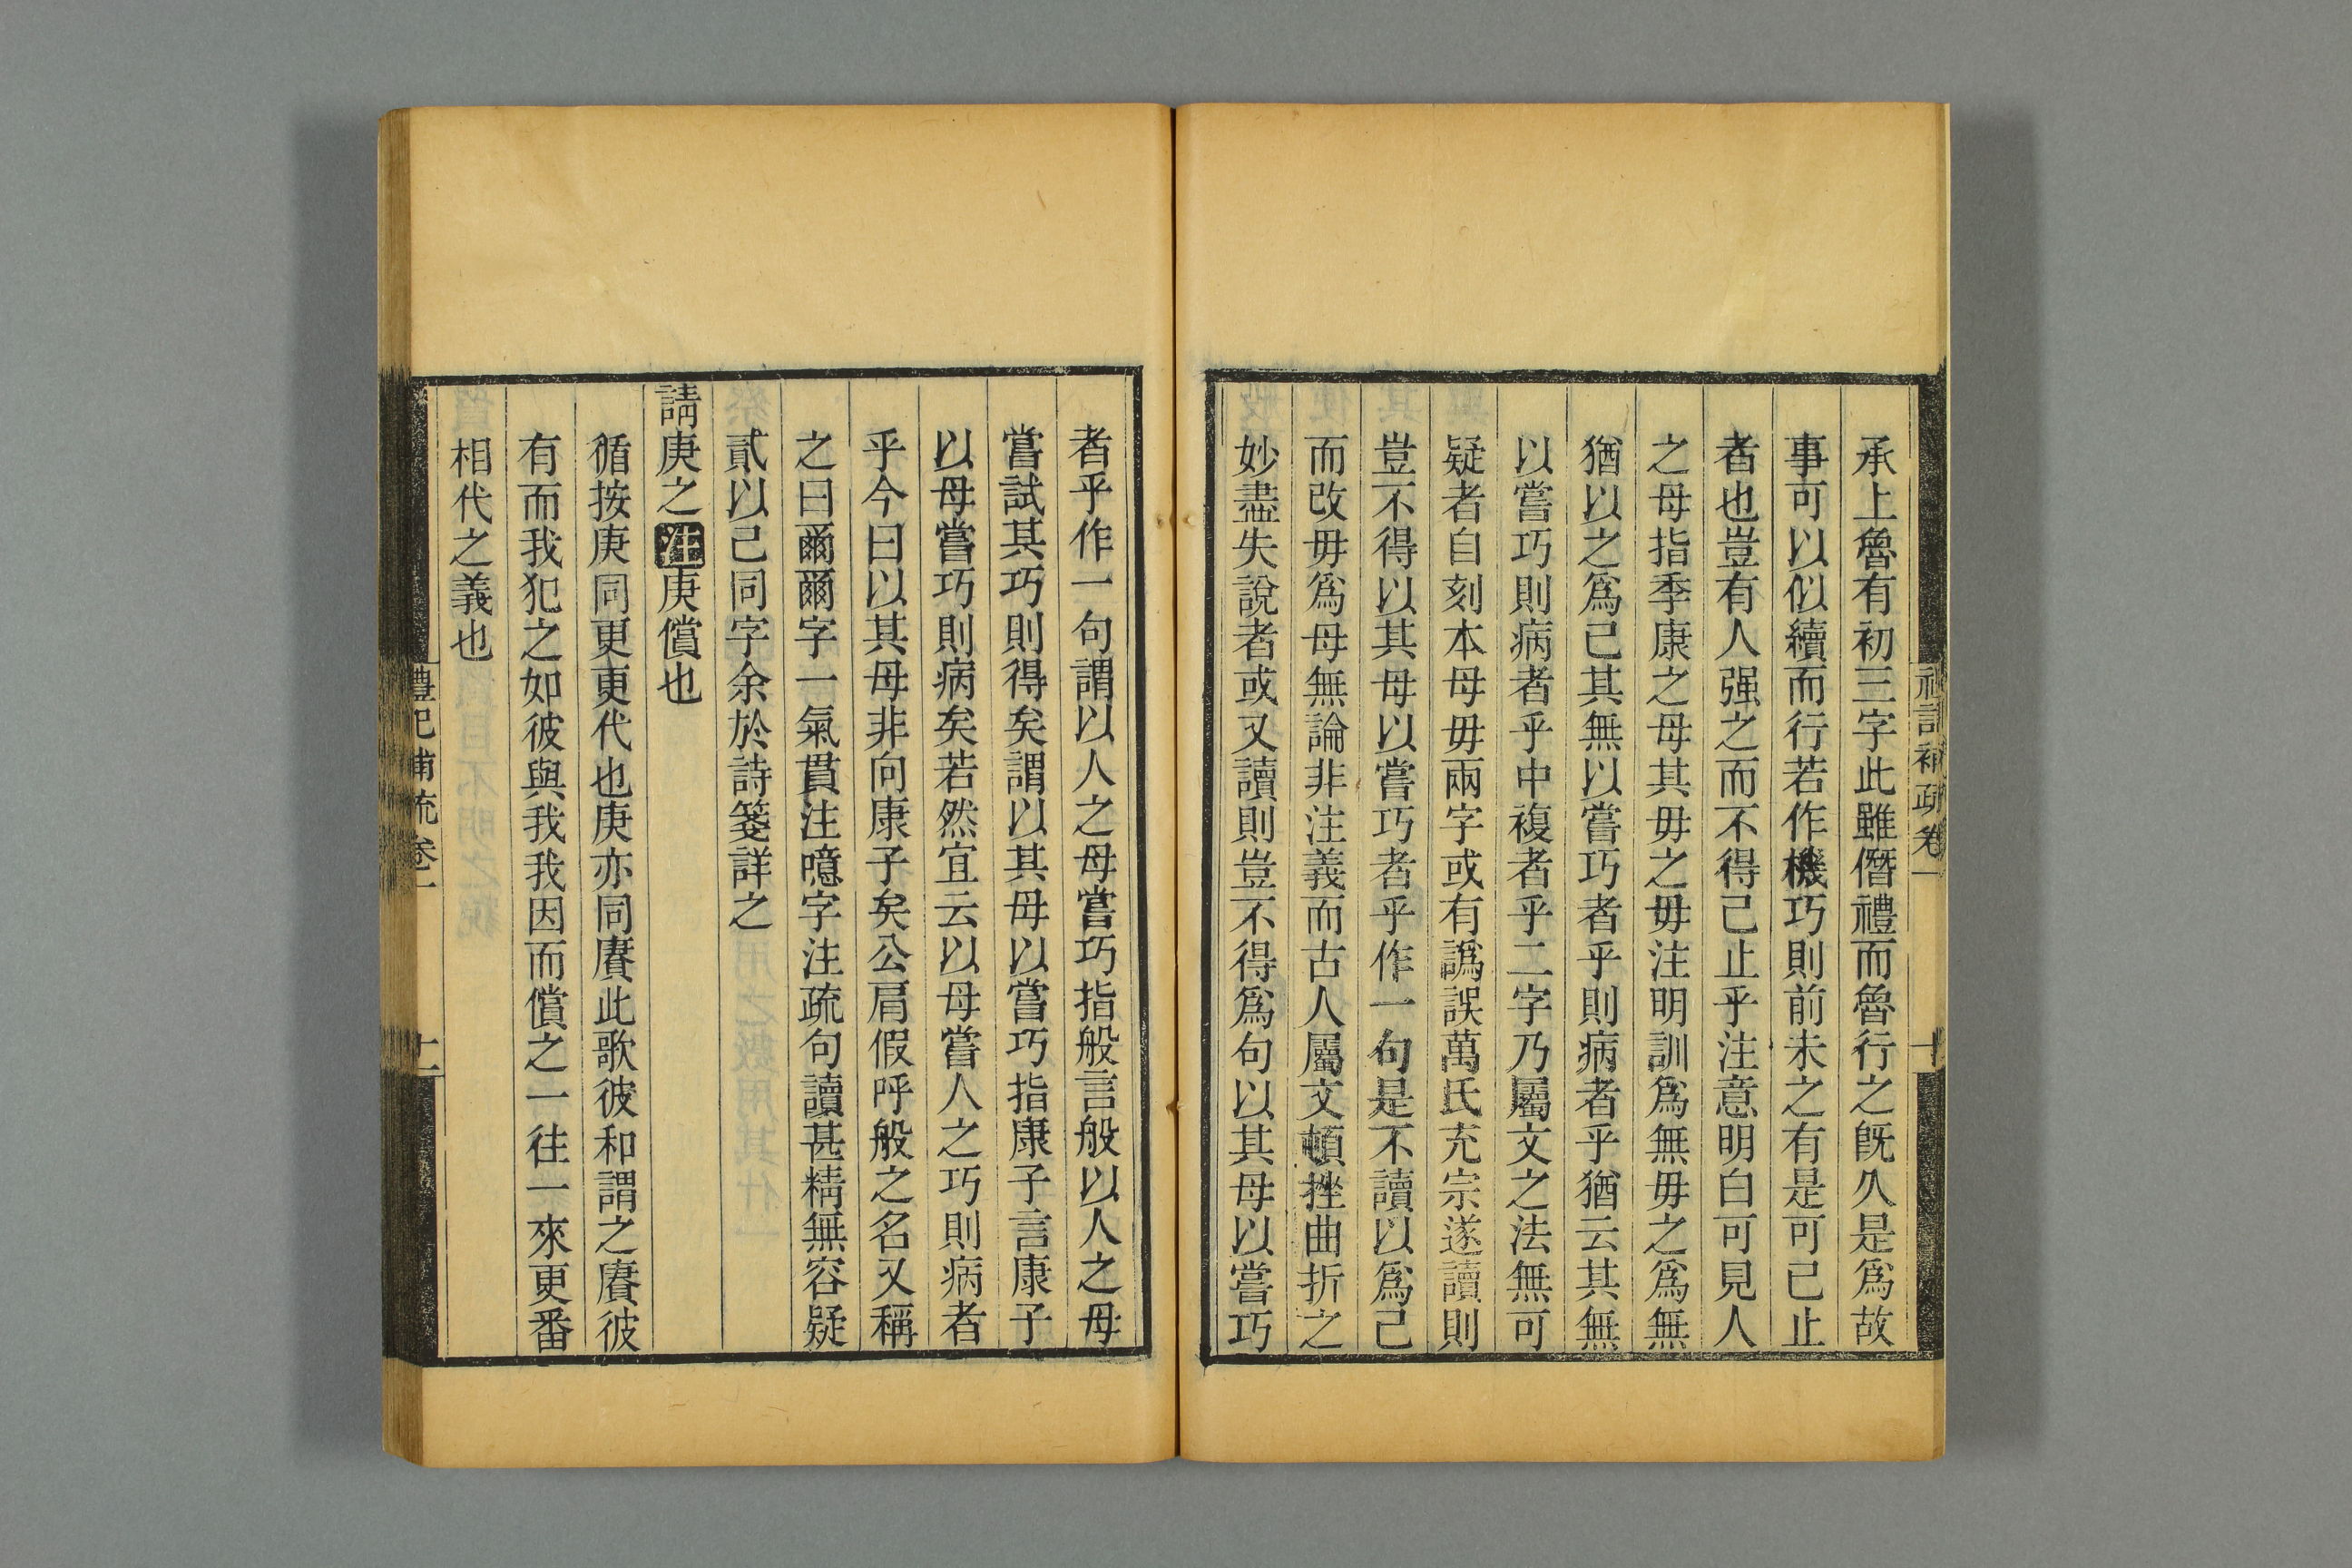 禮記補疏卷一
十
承上魯有初三字此雖僭禮而魯行之旣久是爲故
事可以似續而行若作機巧則前未之有是可已止
者也豈有人强之而不得已止乎注意明白可見人
之母指季康之母其毋之毋注明訓爲無毋之爲無
猶以之爲已其無以嘗巧者乎則病者乎猶云其無
以嘗巧則病者乎中複者乎二字乃屬文之法無可
疑者自刻本母毋兩字或有譌誤萬氏充宗遂讀則
豈不得以其母以嘗巧者乎作一句是不讀以爲已
而改毋爲母無論非注義而古人屬文頓挫曲折之
妙盡失說者或又讀則豈不得爲句以其母以嘗巧
者乎作一句謂以人之母嘗巧指般言般以人之母
嘗試其巧則得矣謂以其毋以嘗巧指康子言康子
以母嘗巧則病矣若然宜云以母嘗人之巧則病者
乎今曰以其母非向康子矣公肩假呼般之名又稱
之曰爾爾字一氣貫注噫字注疏句讀甚精無容疑
貳以已同字余於詩箋詳之
請庚之注庚償也
循按庚同更更代也庚亦同賡此歌彼和謂之賡彼
有而我犯之如彼與我我因而償之一往一來更番
相代之義也
禮記補疏卷一
十一